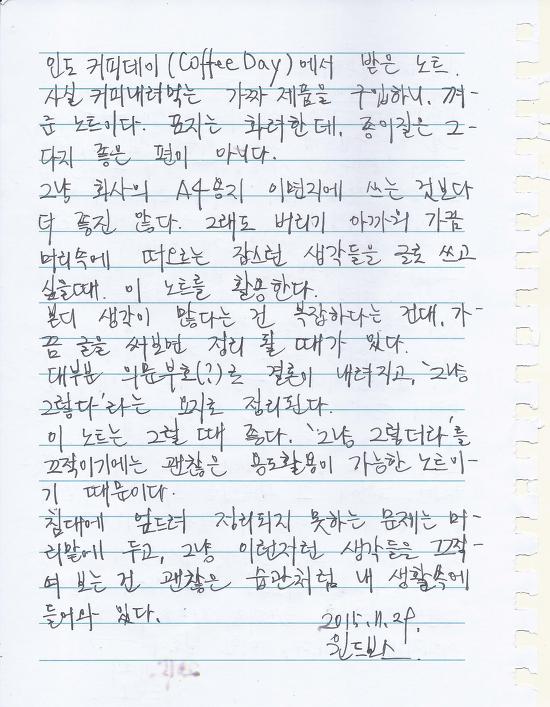 인도 커피데이 (Coffee Day) 에서 받은 노트.
사실 커피내려먹는 가짜 제품을 구입하니, 껴-
준 노트이다. 표지는 화려한데, 종이질은 그-
다지 좋은 편이 아니다.
그냥 회사의 A4용지 이면지에 쓰는 것보다
더 좋진 않다. 그래도 버리기 아까워 가끔
머리속에 떠오르는 잡스런 생각들을 글로 쓰고
싶을때, 이 노트를 활용한다.
본디 생각이 많다는 건 복잡하다는 건대, 가-
끔 글을 써보면 정리 될 때가 있다.
대부분 의문부호(?)로 결론이 내려지고, '그냥
그렇다'라는 요지로 정리된다.
이 노트는 그럴 때 좋다. '그냥 그렇더라'를
끄적이기에는 괜찮은 용도활용이 가능한 노트이-
기 때문이다.
침대에 엎드려 정리되지 못하는 문제는 머-
리맡에 두고, 그냥 이런저런 생각들을 끄적-
여 보는 건 괜찮은 습관처럼 내 생활속에
들어와 있다.
2015.11.29.
윈드보스